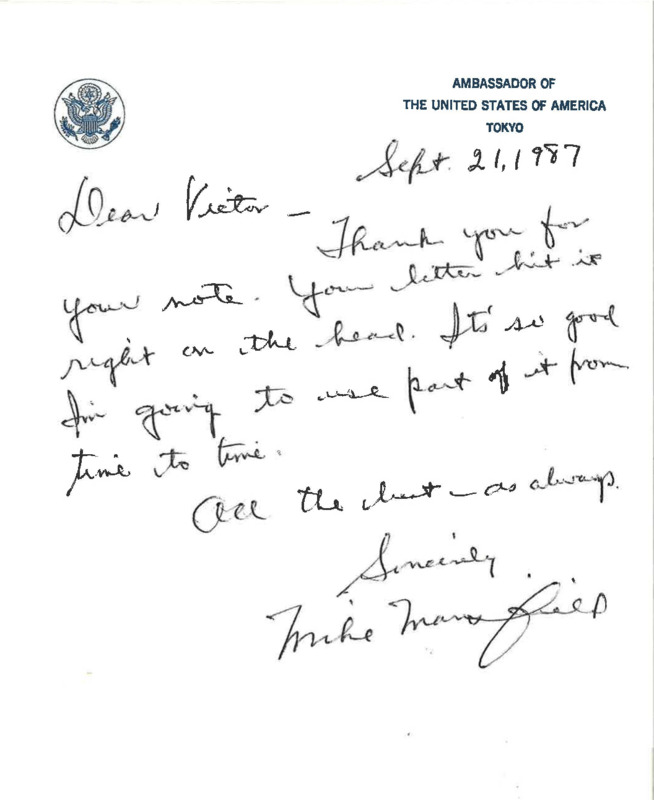 AMBASSADOR OF
THE UNITED STATES OF AMERICA
TOKYO
Sept. 21, 1987
Dear Victor –
Thank you for
your note. Your letter hit it
right on the head. It's so good
I'm going to use part of it from
time to time.
All the best – as always.
Sincerely
Mike Mansfield